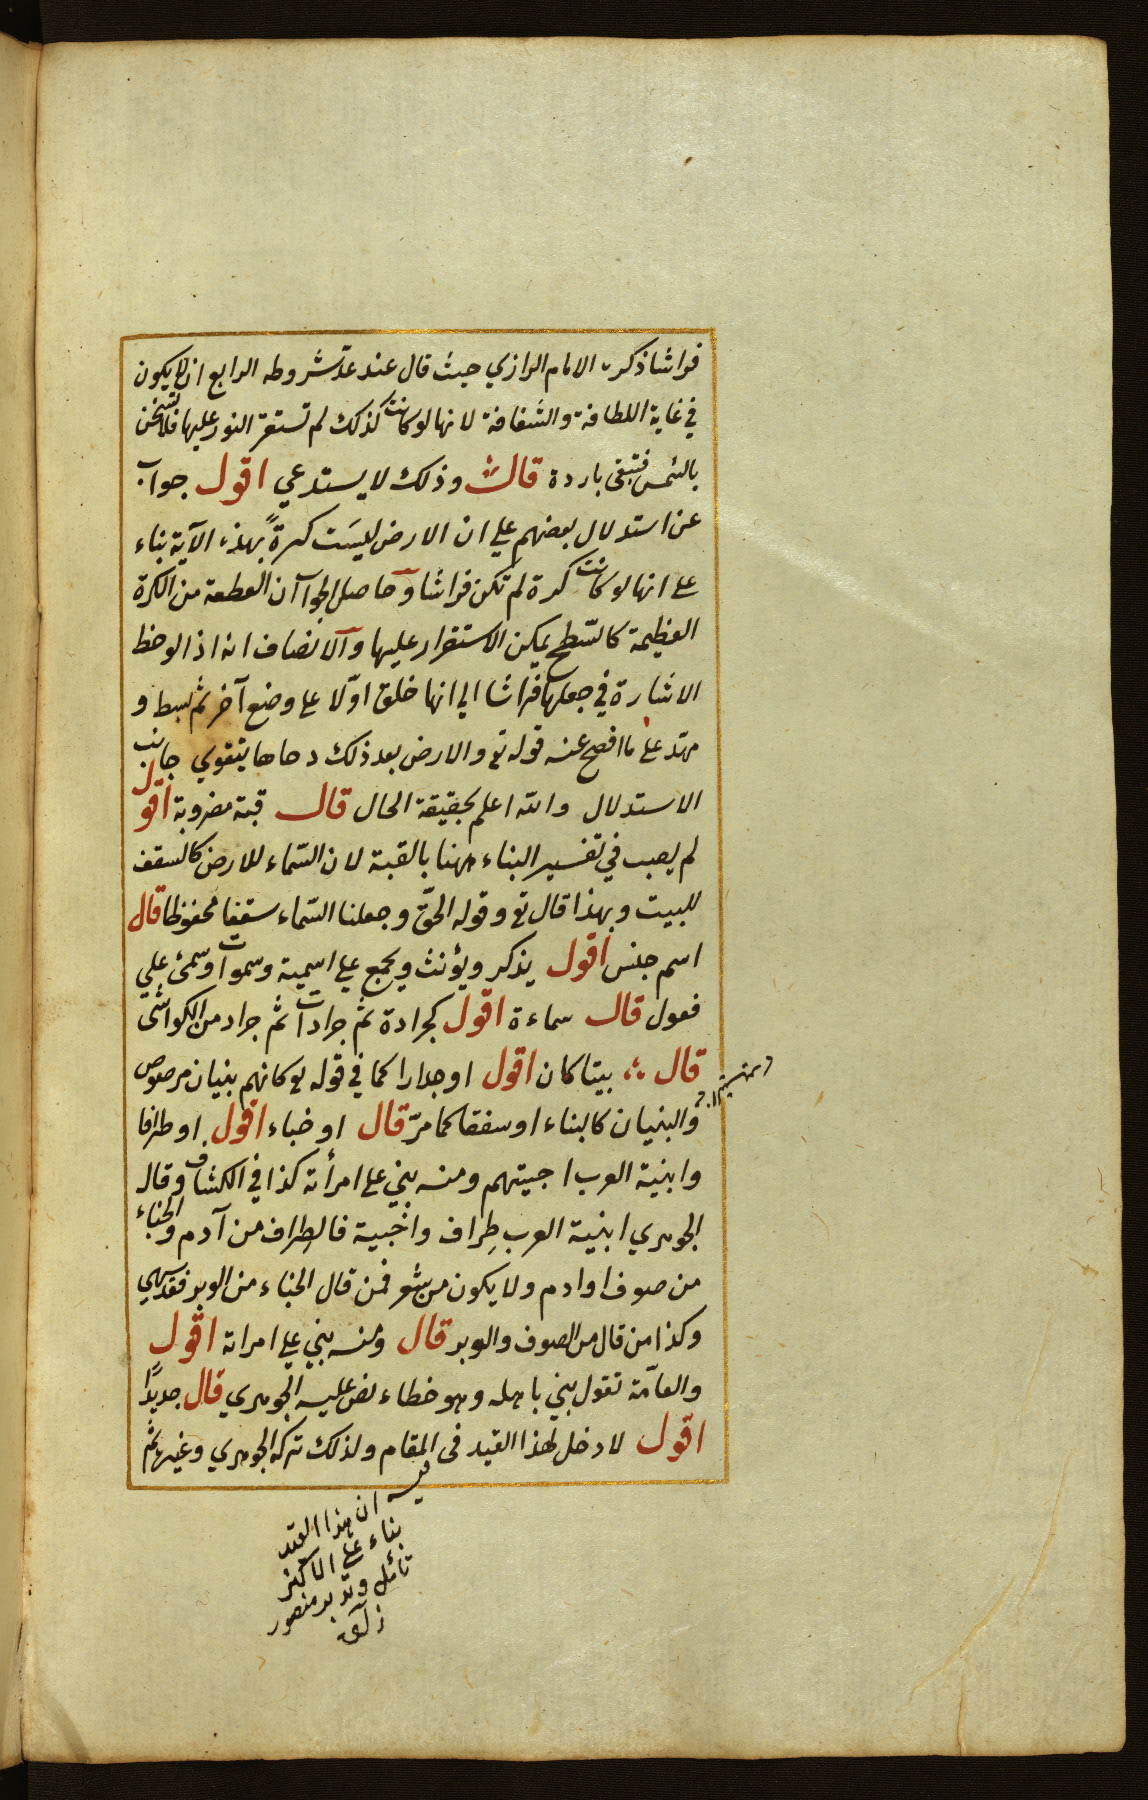 فراشا ذكره الامام الرازي حيث قال عند عدّ شروطه الرابع ان لا يكون
في غاية اللطافة والشفافة لانها لو كانت كذلك لم تستقر النور عليها فلا تسخن
بالشمس فتبقى باردة قال وذلك لا يستدعي اقول جواب
عن استدلال بعضهم علي ان الارض ليسَت كرةً بهذه الآية بناء
على انها لو كانت كرة لم تكن فراشا وحاصل الجواب ان القطعة من الكرة
العظيمة كالسّطح يمكن الاستقرار عليها والانصاف انه اذا لوحظ
الاشارة في جعلها فراشا الي انها خلق اوّلا على وضع آخر ثم بسط و
مهّد على ما افصح عنه قوله تع والارض بعد ذلك دحاها يتقوي جانب
الاستدلال والله اعلم بحقيقة الحال قال قبة مضروبة اقول
لم يصب في تفسير البناء ههنا بالقبة لان السّماء للارض كالسقف
للبيت وبهذا قال تع وقوله الحقّ وجعلنا السّماء سقفا محفوظا قال
اسم جنس اقول يذكر ويؤنث ويجمع علي اسمية وسموات وسمئ علي
فعول قال سماءة اقول كجرادة ثم جرادات ثم جراد من الكواشى
قال بيتا كان اقول او جدارا كما في قوله تع كانهم بنيان مرصوص
والبنيان كالبناء او سقفا كما مرّ قال او خباء اقول او طرافا
وابنية العرب اخبيتهم ومنه بني على امرأته كذا في الكشاف وقال
الجوهري ابنية العرب طِراف واخبية فالطراف من آدم والخباء
من صوف او ادم ولا يكون من شعر فمن قال الخباء من الوبر فقد سهي
وكذا من قال من الصوف والوبر قال ومنه بني علي امراته اقول
والعامّة تقول بني باهله وهو خطاء نص عليه الجوهري قال جديدًا
اقول لا دخل لهذا القيد فى المقام ولذلك تركه الجوهري وغيره ثم
فيه ان هذا القيد
بناء على الاكثر
تأمل وتدبر منصور